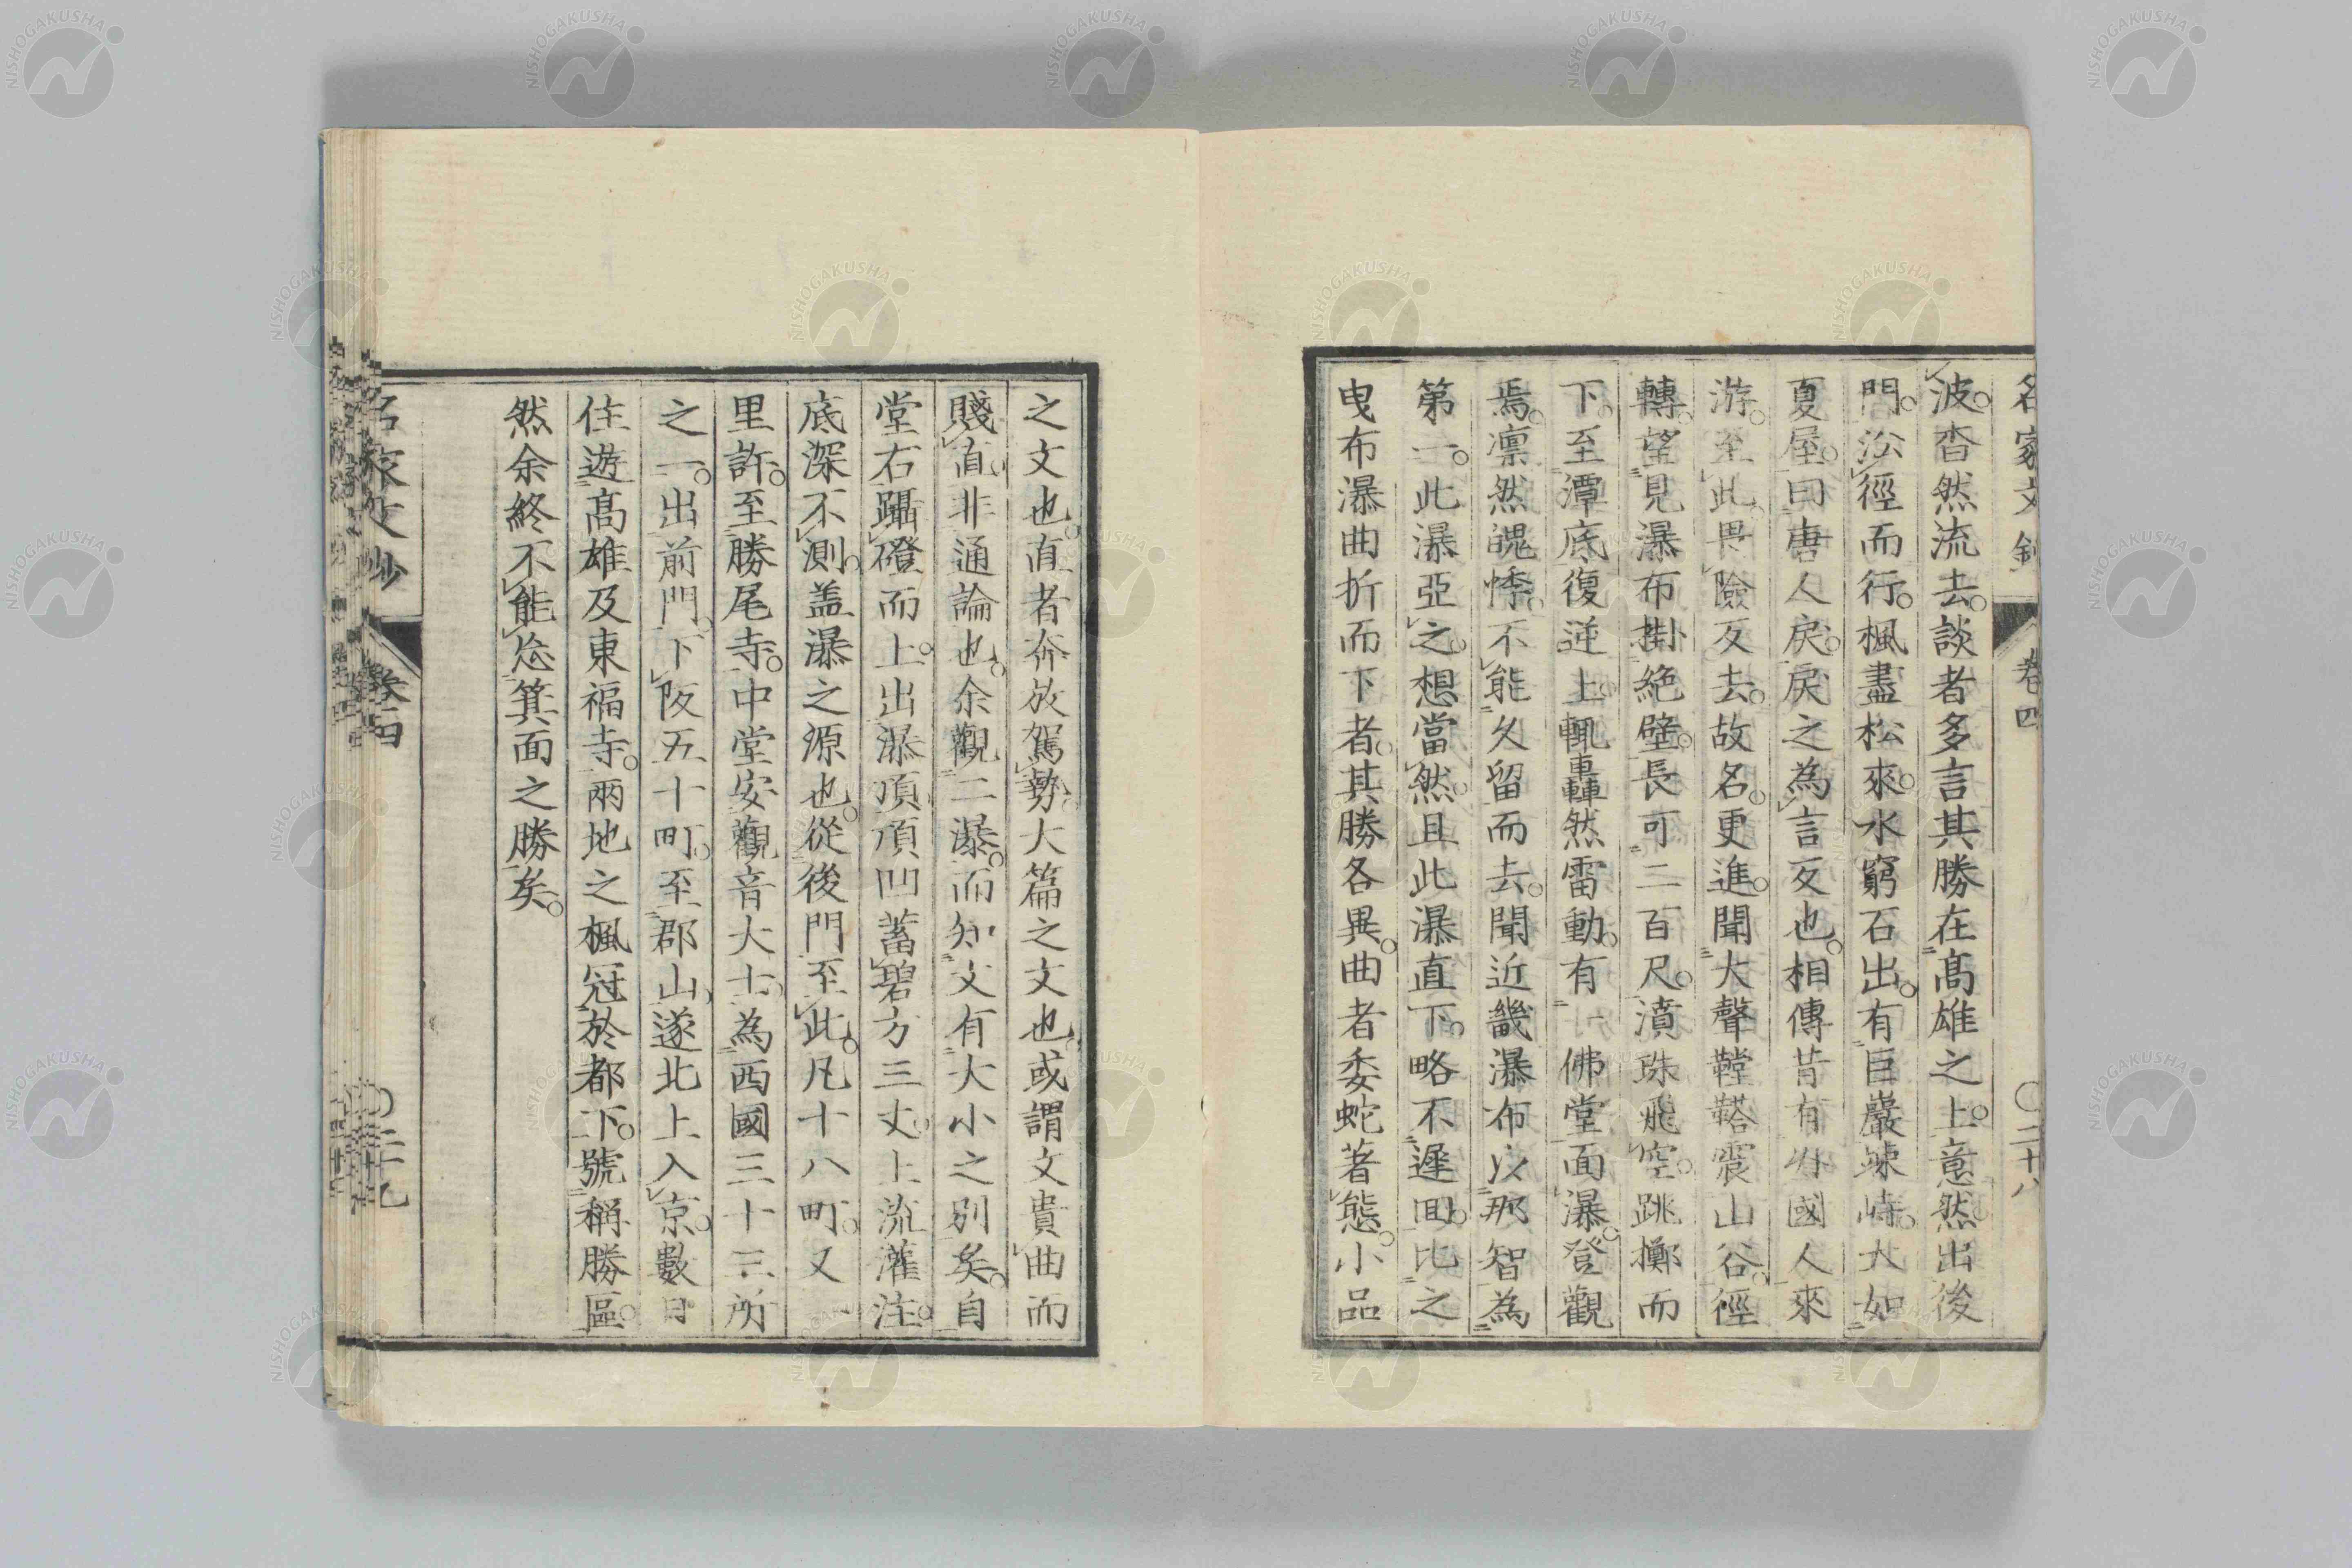 名家文鈔 卷四 〇二十八
波。杳然流去。談者多言其勝在髙雄之上。意然。出後
門。㳂徑而行。楓盡松來。水窮石出。有巨巖竦峙。大如
夏屋。曰唐人戾。戾之為言反也。相傳昔有 國人來
游。至此畏險反去。故名。更進。聞大聲鞺鞳震山谷。徑
轉。望見瀑布掛絶壁。長可二百尺。濆珠飛空。跳擲而
下。至潭底復逆上。輒轟然雷動。有一佛堂面瀑。登觀
焉。凛然魄悸。不能久留而去。聞近畿瀑布以那智為
第一。此瀑亞之。想當然。且此瀑直下。略不遲囬。比之
曳布瀑曲折而下者。其勝各異。曲者委蛇著態。小品
之文也。直者奔放駕勢。大篇之文也。或謂文貴曲而
賤直。非通論也。余觀二瀑。而知文有大小之別矣。自
堂右躡磴而上。出瀑頂。頂凹蓄碧方三丈。上流灌注。
底深不測。盖瀑之源也。從後門至此。凡十八町。又一
里許。至勝尾寺。中堂安觀音大士。為西國三十三所
之一。出前門。下阪五十町。至郡山。遂北上入京。數日
住遊髙雄及東福寺。兩地之楓冠於都下。號稱勝區。
然余終不能忩箕面之勝矣。
名家文鈔 卷四 〇二十九